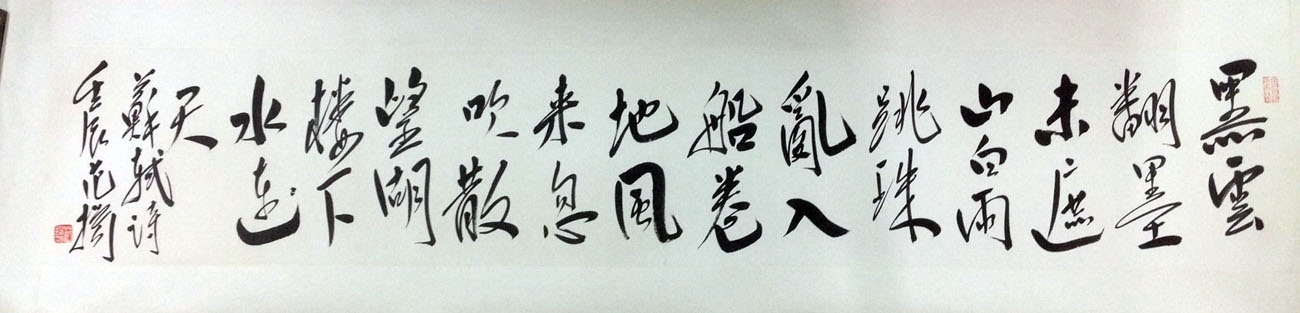 黑雲
翻墨
未遮
山白雨
跳珠
亂入
船卷
地風
来息
吹散
望湖
樓下
水连
天
蘇軾诗
壬辰范